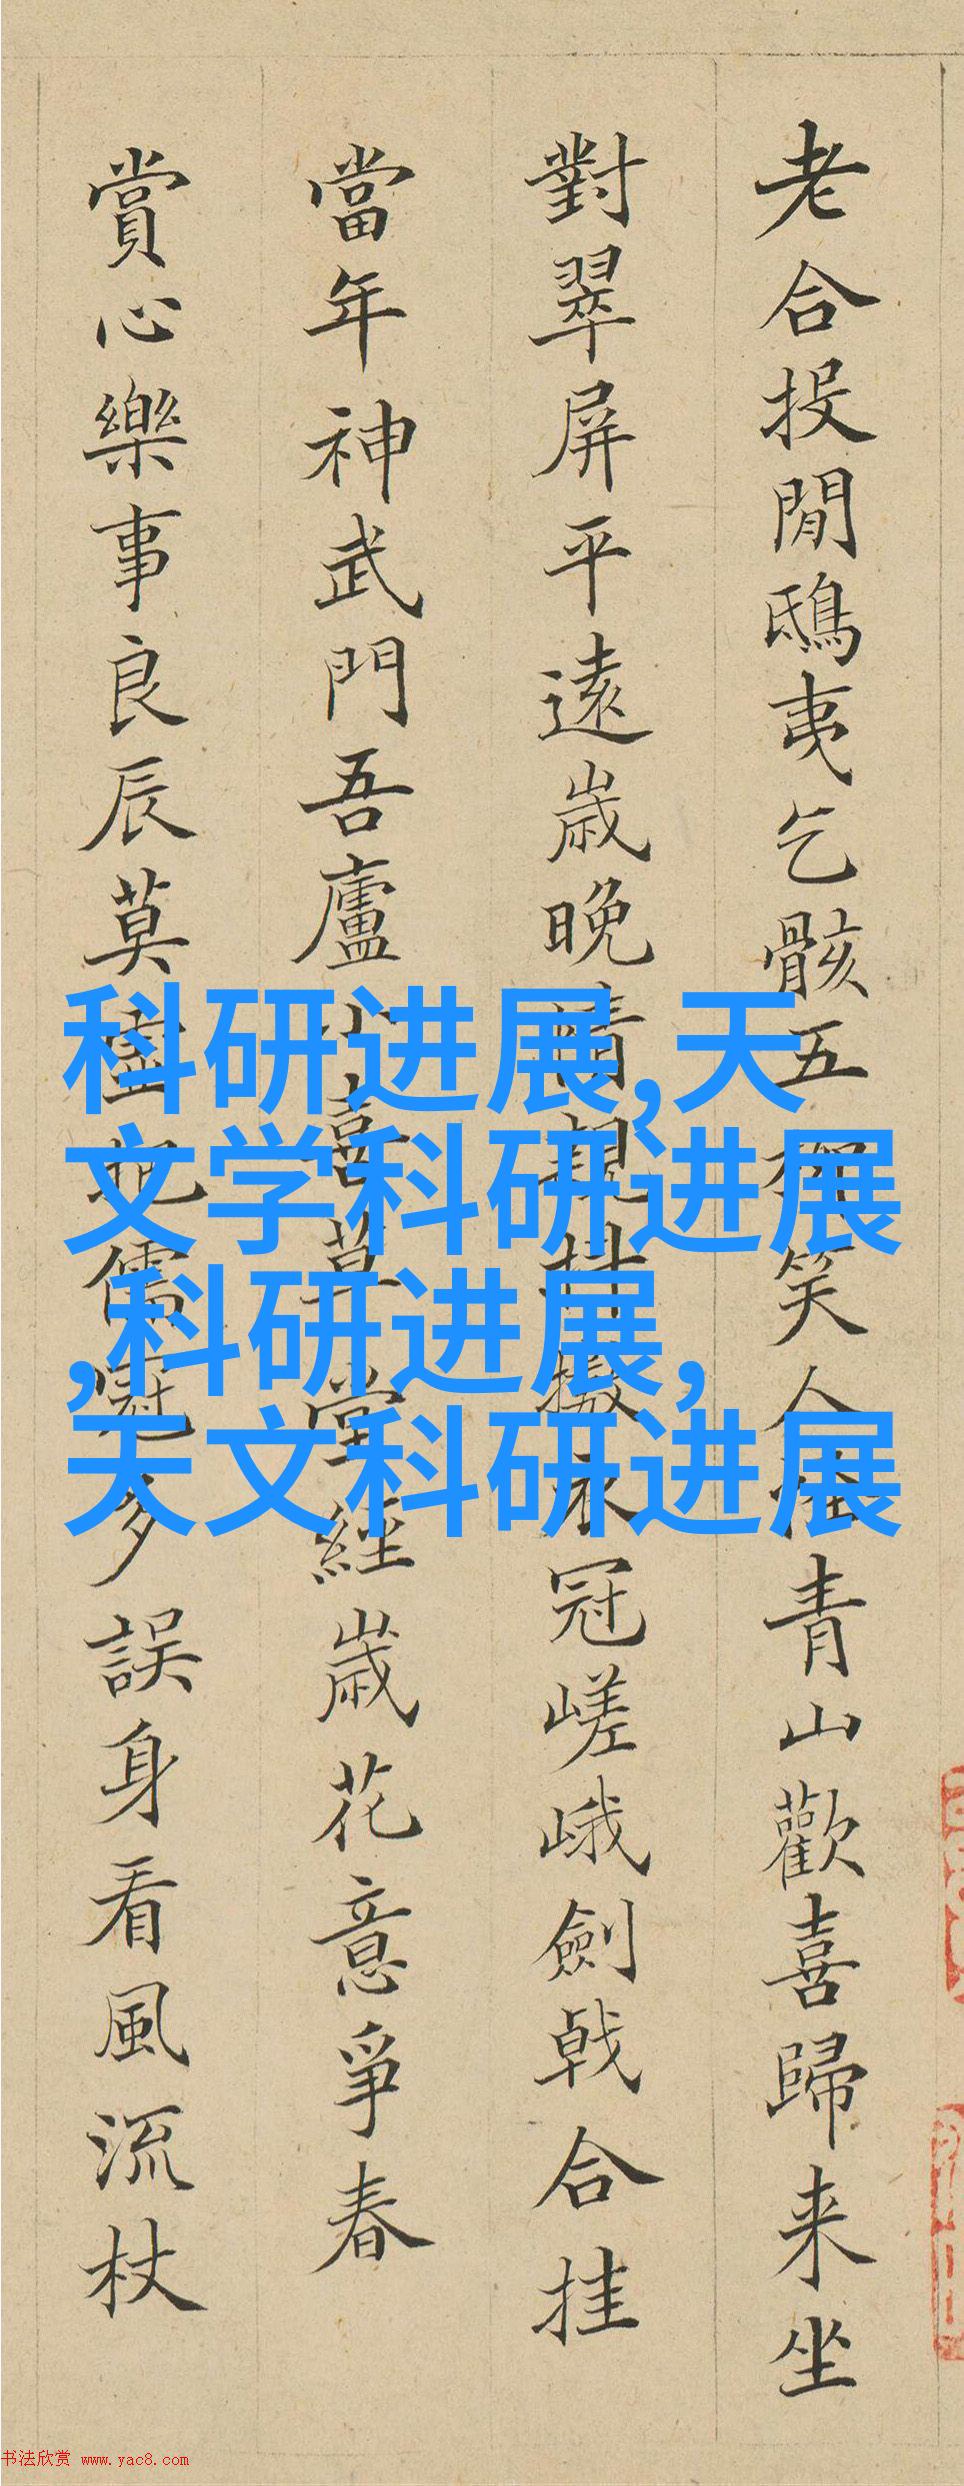 老合投閒鴟夷乞骸五笑人青山歡喜歸来坐
對翠屏平遠歲晚晴抖擻衣冠嵯峨劍戟合挂
當年神武門吾廬小喜草堂經歲花意爭春
賞心樂事良辰莫把儒冠多誤身看風流杖
科研进展,天
文学科研进展
,科研进展,
天文科研进展
书法欣赏 www.yac8.com